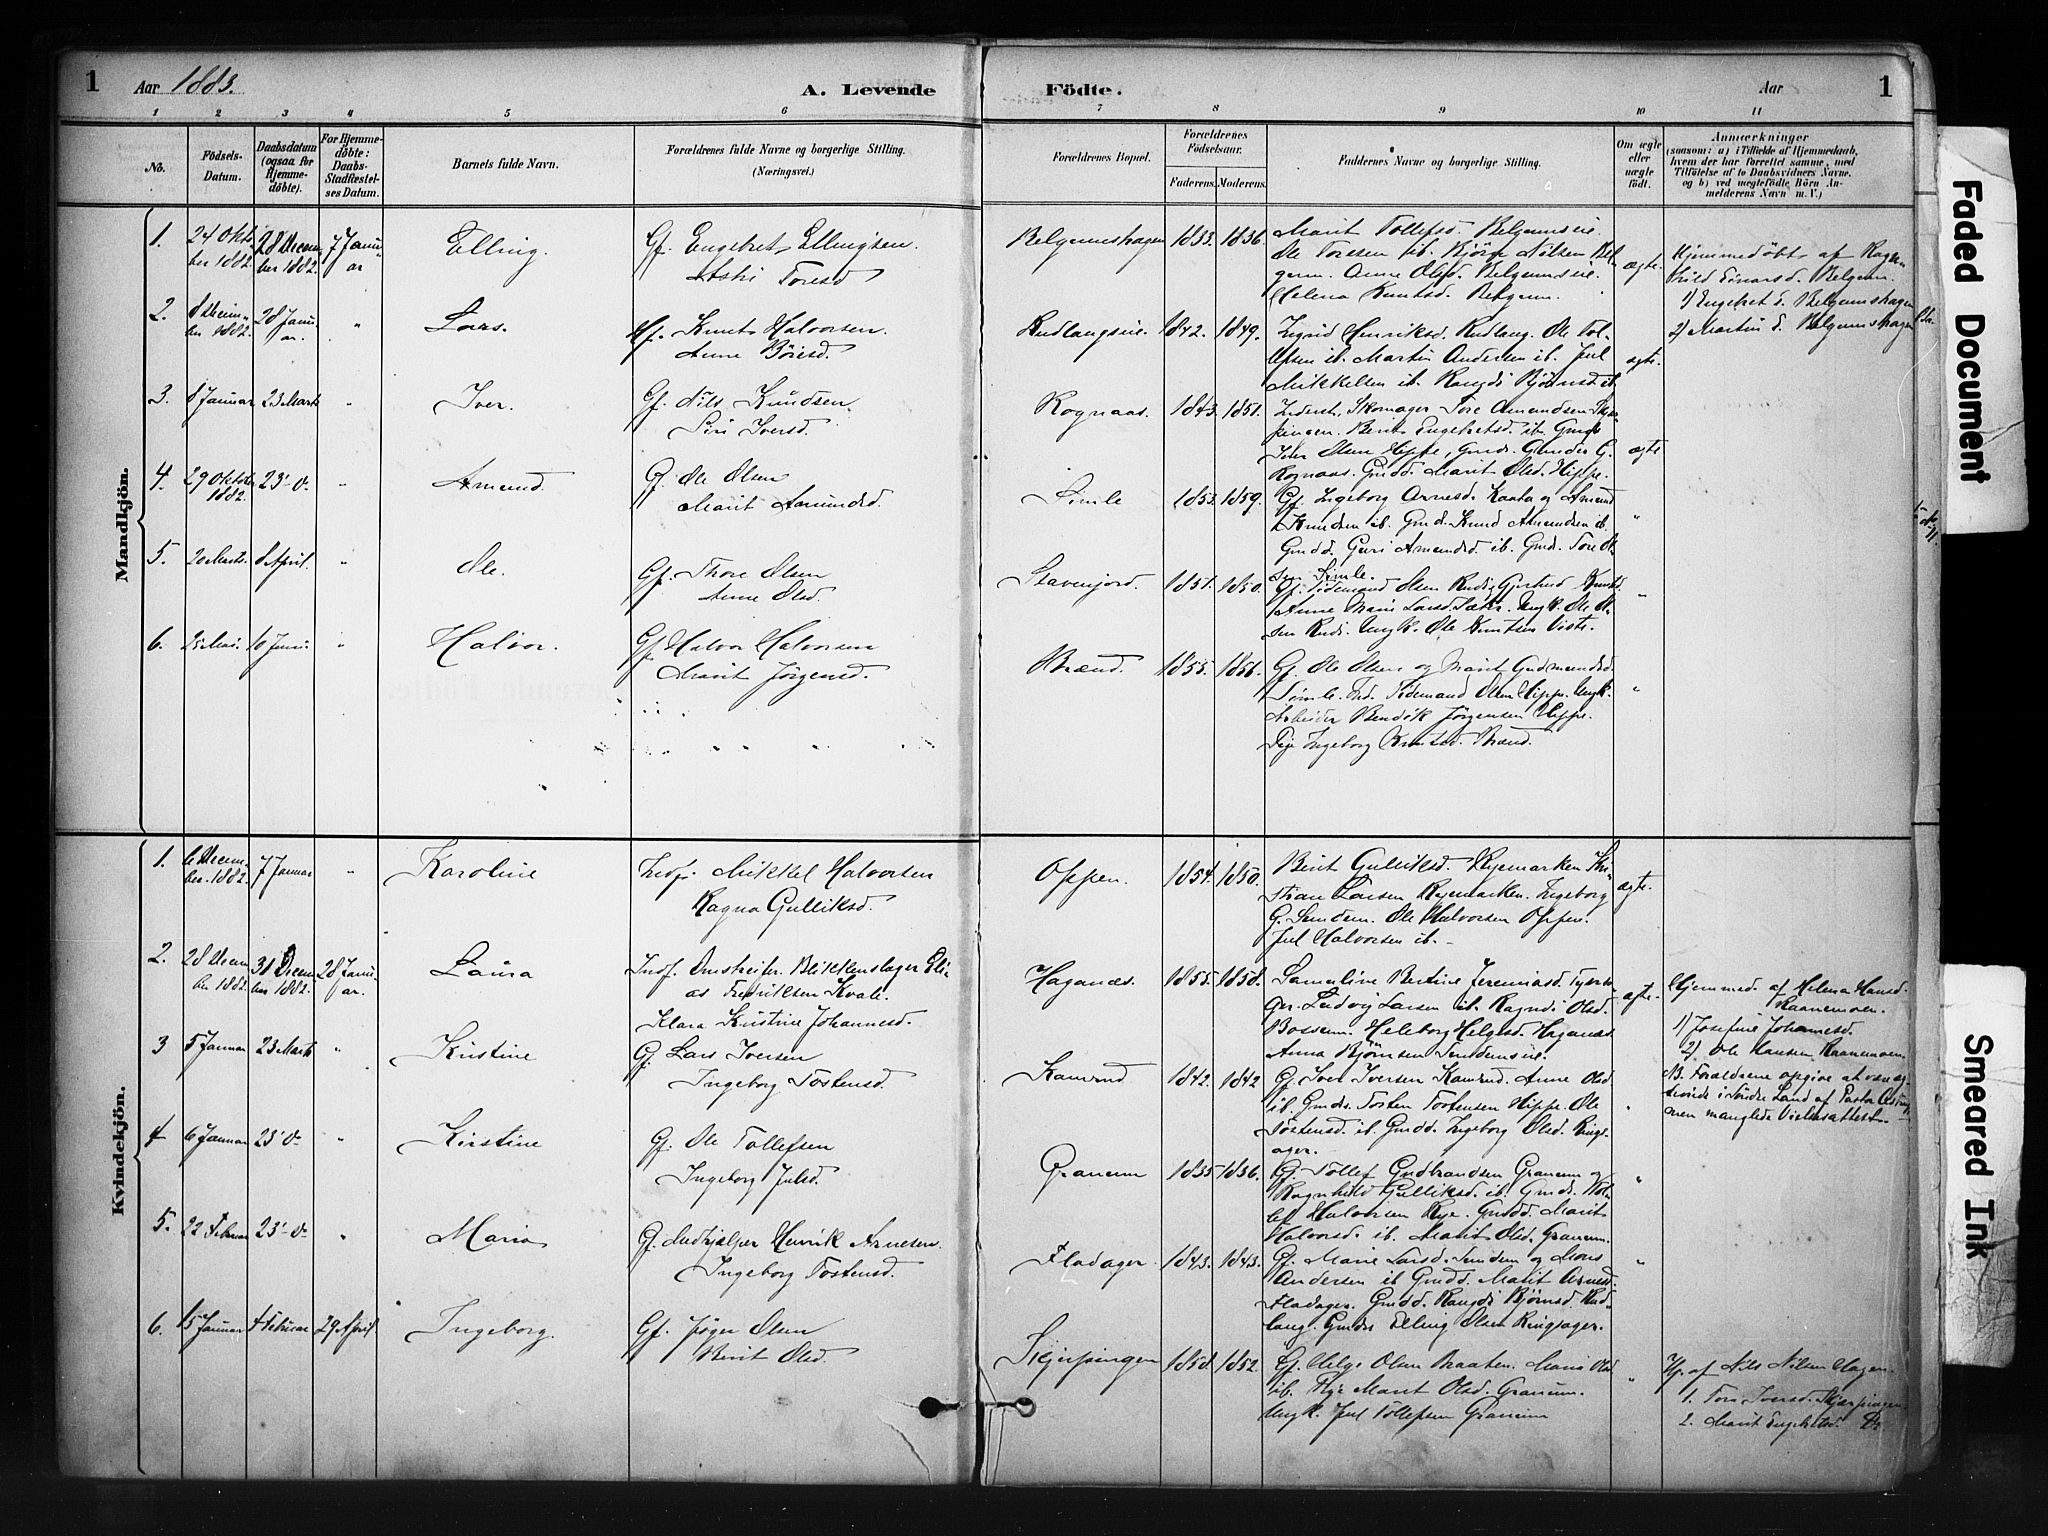 1 Aar 1883. A. Levende Födte. Aar 1
1 2 3 4 5 6 7 8 9 10 11
No.
Födsels-
Datum.
Daabsdatum
(ogsaa for
Hjemme-
döbte).
For Hjemme-
döbte:
Daabs-
Stadfæstel-
ses Datum.
Barnets fulde Navn.
Forældrenes fulde Navne og borgerlige Stilling.
(Næringsvei.)
Forældrenes Bopæl.
Forældrenes
Födselsaar.
Faderens. Moderens.
Faddernes Navne og borgerlige Stilling.
Om ægte
eller
uægte
födt.
Anmærkninger
(saasom: a) i Tilfælde af Hjemmedaab,
hvem der har forrettet samme, med
Tilföielse af to Daabsvidners Navne.
og b) ved uægtefödte Börn An-
melderens Navn m. V.)
Mandkjön.
1. 24 Okto-
ber 1882. 28 Decem
ber 1882. 7 Janu
ar Elling. Gf. Engebret Ellingsen
Aski Toresd Belgumshagen 1833. 1836. Marit Tollefsd. Belgumseie.
Ole Toresen ib. Björg Nilsen Bel-
gum. Anne Olsd. Belgumseie.
Helena Knutsd. Belgum. ægte. Hjemmedöbt af Ragn-
hild Belgum.
1) Engebret E. Belgumshagen
2) Martin E. Belgumshagen
2. 8 Decem-
ber 1882. 28 Janu-
ar. " Lars. Hf. Knut Halvorsen.
Anne Böiesd. Rudlangseie. 1842. 1849. Ingrid Henriksd. Rudlang. Ole Tol-
lefsen ib. Martin Andersen ib. Jul
Mikkelsen ib. Rangdi Björnsd ib. ægte.
3. 8 Januar 23 Marts " Iver. Gf. Nils Knudsen
Siri Iversd. Rognaas. 1843. 1851. Inderst, Skomager Tore Amundsen Skjær
pingen. Berit Engebretsd. ib. Gmd.
Iver Olsen Hippe, Gmds. G.
Rognaas. Gmdd. Marit Olsd. Hippe. ægte
4. 29 Oktober
1882. 23' d. " Amund. Gf. Ole Olsen
Marit Amundsd. Simle 1853. 1859. Gf. Ingeborg Arnesd. Kaata og Amund
Knudsen ib. Gmds. Knud Amundsen ib.
Gmdd. Guri Amundsd ib. Gmds. Tore Ol-
sen Simle. "
5. 20 Marts. 8 April. " Ole. Gf. Thore Olsen
Anne Olsd. Stavenjord. 1851. 1850. Gf. Tidemand Olsen Rudi, Gjertrud Knutsd.
Anne Marie Larsd. Sæter. Ungk. Ole Ol-
sen Rudi. Ungk. Ole Knutsen Viste. "
6. 25 Mai. 10 Juni. " Halvor. Gf. Halvor Halvorsen
Marit Jörgensd. Brænd. 1855. 1856. Gf. Ole Olsen og Marit Gudmundsd.
Simle. Ind. Tidemand Olsen Hippe. Ungk.
Arbeider Bendik Jörgensen Hippe.
Pige Ingeborg Knutsd. Brænd. "
Kvindekjön.
1. 6 Decem-
ber. 1882. 7 Januar " Karoline Indf. Mikkel Halvorsen
Ragna Gulliksd. Oppen. 1854. 1850. Berit Gulliksd. Ryemarken Kri-
stian Larsen Ryemarken. Ingeborg
G. Semdem. Ole Halvorsen Oppen.
Jul Halvorsen ib. ægte.
2. 28 Decem
ber 1882. 31 Decem
ber 1882. 28 Janu-
ar. Laura Indf. Omstreifer. Blikkenslager Eli-
as Fredriksen Kvale.
Klara Kristine Johannesd. Haganæs. 1855. 1858. Samueline Bertine Jeremiasd.
Ludvig Larsen ib. Ragndi Olsd.
Bossum. Heleborg Helgesd. Haganæs.
Anna Björnsen Semdemseie. ægte. Hjemmed. af Helena Hansd.
Raanemoen.
1) Josefine Johannesd.
2) Ole Hansen Raanemoen.
3 5 Januar 23 Marts " Kristine Gf. Lars Iversen
Ingeborg Tostensd. Kamrud 1842. 1842 Gf. Iver Iversen Kamrud. Anne Olsd
ib. Gmds. Tosten Tostensen Hippe. Ole
Tostensd. ib. Gmdd. Ingeborg Olsd. Rings-
ager. " NB. Forældrene opgive at være æg-
teviede i Söndre Land af Pastor
men manglede Vielsesattest.
4 6 Januar 23' d. " Kirstine Gf. Ole Tollefsen
Ingeborg Julsd. Granum 1835 1836. Gf. Tollef Gudbrandsen Granum og
Ragnhild Gulliksd. ib. Gmds. Tol-
lef Halvorsen Rye. Gmdd. Marit
Halvorsd. ib. Marit Olsd. Granum. "
5. 22 Februar 23' d. " Maria Gf. Lodhjælper Henrik Arnesen.
Ingeborg Tostensd. Fladager. 1843. 1843. Gf. Marie Larsd. Semdem og Mons
Andersen ib Gmdd. Marit Arnesd.
Fladager. Gmdd. Rangdi Björnsd. Rud-
lang. Gmds Elling Olsen Ringsager. "
6. 15 Januar 4 Februar 29 April Ingeborg. Gf. Jöger Olsen
Berit Olsd. Skjerpingen 1850. 1852. Gf. Helge Olsen Braaten. Maria Olsd
ib. Pige Marit Olsd. Granum.
Ungk. Jul Tollefsen Granum " Hj. af Nils Nilsen Hagen.
1. Tore Iversd. Skjærpingen.
2. Marit Engebretsd. Do
Faded Document
Smeared Ink